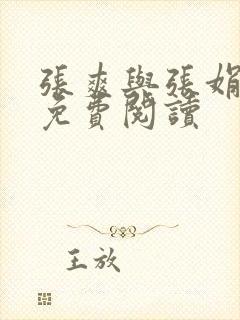 張爽與張娟
免費閱讀
王放